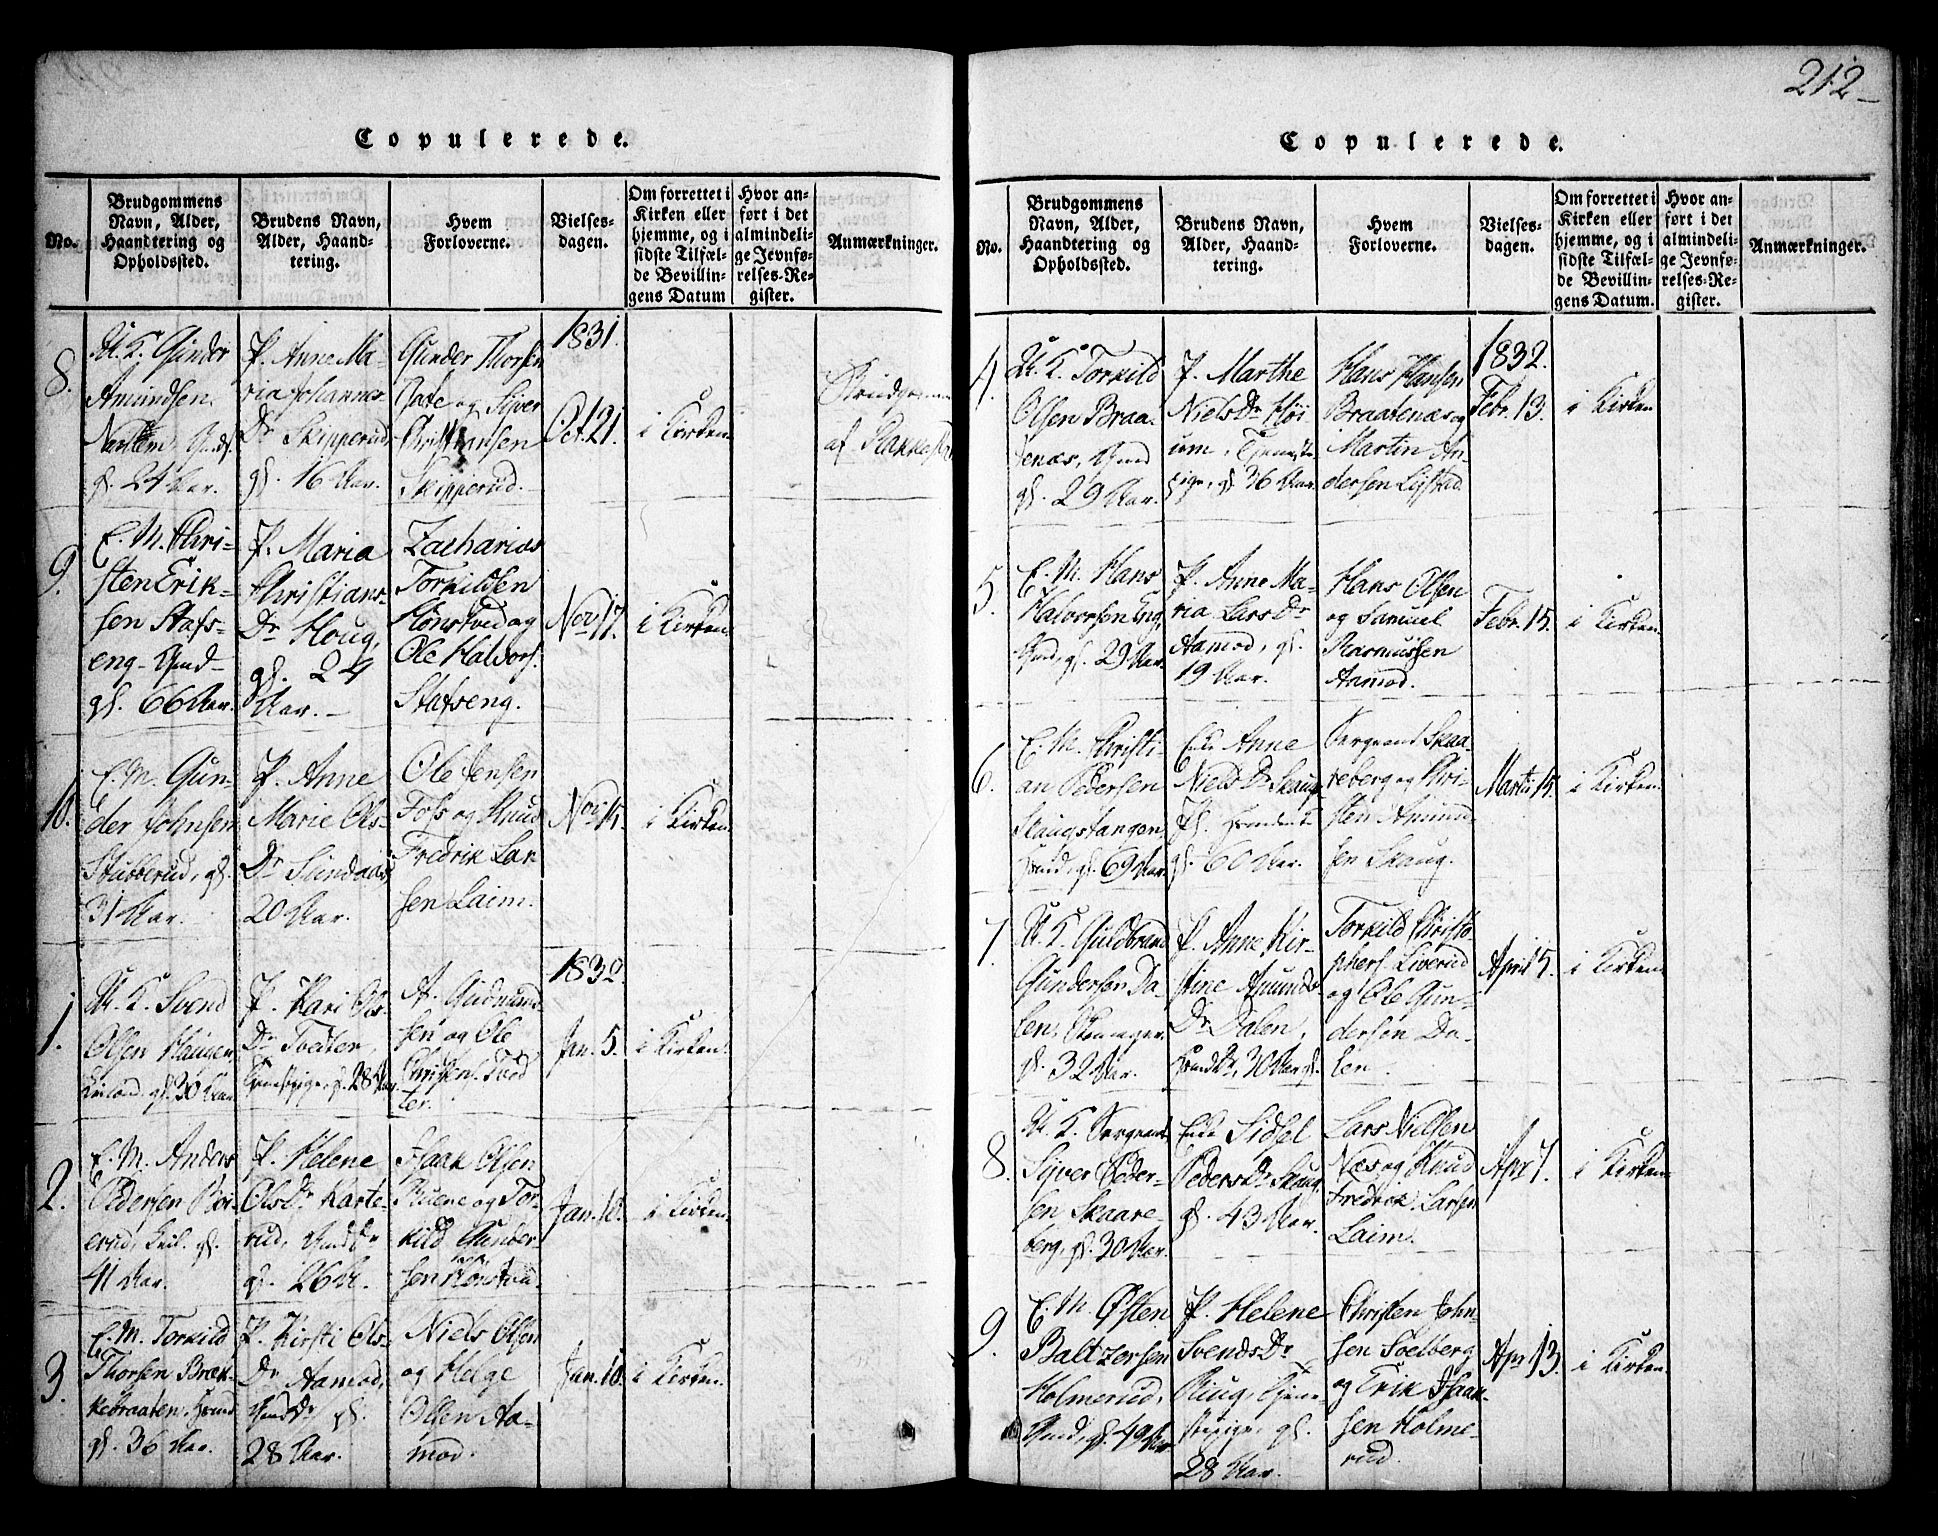 212
Copulerede.
No.
Brudgommens
Navn, Alder,
Haandtering og
Opholdssted.
Brudens Navn,
Alder, Haand-
tering.
Hvem
Forloverne.
Vielses-
dagen.
Om forrettet i
Kirken eller
hjemme, og i
sidste Tilfæl-
de Bevillin-
gens Datum
Hvor an-
ført i det
almindeli-
ge Jevnfø-
relses-Re-
gister.
Anmærkninger.
8.
U. K. Gunder
Amundsen
gl. 24 Aar.
P. Anne Ma-
ria Johannes
Dr Skipperud
gl. 16 Aar.
Gunder Thorsen
og Siver
Christiansen
Skipperud.
1831.
Oct. 21.
i Kirken.
af Rakkestad
9.
E. M. Chri-
sten Erik-
sen Stafs-
eng
gl. 66 Aar.
P. Maria
Christians-
Dr Houg,
gl. 24
Aar.
Zacharias
Torkildsen
Hønstved og
Ole Halvors.
Stafseng.
Nov. 17.
i Kirken.
10.
E. M. Gun-
der Johnsen
Stubberud, gl.
31 Aar.
P. Anne
Marie Ols-
Dr Sundaas
20 Aar.
Ole Jensen
Foss og Knud
Fredrik Lar
sen Laim.
Nov. 15.
i Kirken.
1.
U. K. Svend
Olsen Haugen,
gl. 30 Aar
P. Kari Ols-
Dr Tveiter,
Tjenestpige, gl. 28 Aar.
A. Gudmund
sen og Ole
Christens. Tved
ter.
1832.
Jan. 5.
i Kirken.
2.
E. M. Anders
Pedersen
erud, gl.
41 Aar.
P. Helene
Ols Dr Karte-
rud,
gl. 26 Aar.
Haak Olsen
Ruene og Tor-
kild Gunder-
sen
Jan. 18.
i Kirken.
3.
E. M. Torkild
Thorsen Bræk-
kebraaten,
gl. 36 Aar.
P. Kirsti Ols-
Dr Aamod,
gl.
28 Aar.
Niels Olsen
og Helge
Olsen Aa-
mod.
Jan. 18.
i Kirken.
Copulerede.
No.
Brudgommens
Navn, Alder,
Haandtering og
Opholdssted.
Brudens Navn,
Alder, Haand-
tering.
Hvem
Forloverne.
Vielses-
dagen.
Om forrettet i
Kirken eller
hjemme, og i
sidste Tilfæl-
de Bevillin-
gens Datum.
Hvor an-
ført i det
almindeli-
ge Jevnfø-
relses-Re-
gister.
Anmærkninger.
4.
U. K. Torkild
Olsen Braa-
tenæs,
gl. 29 Aar.
P. Marthe
Niels Dr Høi-
um, Tjeneste
pige, gl. 36 Aar.
Hans Hansen
Braatenæs og
Martin An-
dersen Ligstad.
1832.
Febr. 13.
i Kirken
5.
E. M. Hans
Halvorsen Eng,
gl. 29 Aar.
P. Anne Ma-
ria Lars Dr
Aamod, gl.
19 Aar.
Hans Olsen
og Samuel
Rasmussen
Aamod.
Febr. 15.
i Kirken.
6.
E. M. Christi-
an Pedersen
Skaugstangen
gl. 69 Aar
Enke Anne
Niels Dr Skaug
gl. 60 Aar.
Sergeant Skaa-
reberg og Chri-
sten Amund-
sen Skaug.
Martii 15.
i Kirken.
7.
U. K. Guldbrand
Gundersen Da-
len,
gl. 32 Aar.
P. Anne Kir-
stine Amunds-
Dr Dalen,
30 Aar gl.
Torkild Christo-
phers. Liverud
og Ole Gun-
dersen Da-
len.
April 5.
i Kirken
8.
U. K. Sergeant
Siver Peder-
sen Skaare-
berg, gl. 30 Aar.
Enke Sidsel
Peders Dr Skaug,
gl. 43 Aar.
Lars Nielsen
Næs og Knud
Fredrik Larsen
Laim.
Apr 7.
i Kirken.
9.
E. M. Østen
Baltzersen
Holmerud,
gl. 49 Aar
P. Helene
Svends Dr
Riug, Tjene-
stepige, gl.
28 Aar.
Christen John-
sen Soelberg
og Erik Haak-
sen Holme-
rud.
Apr. 13.
i Kirken.